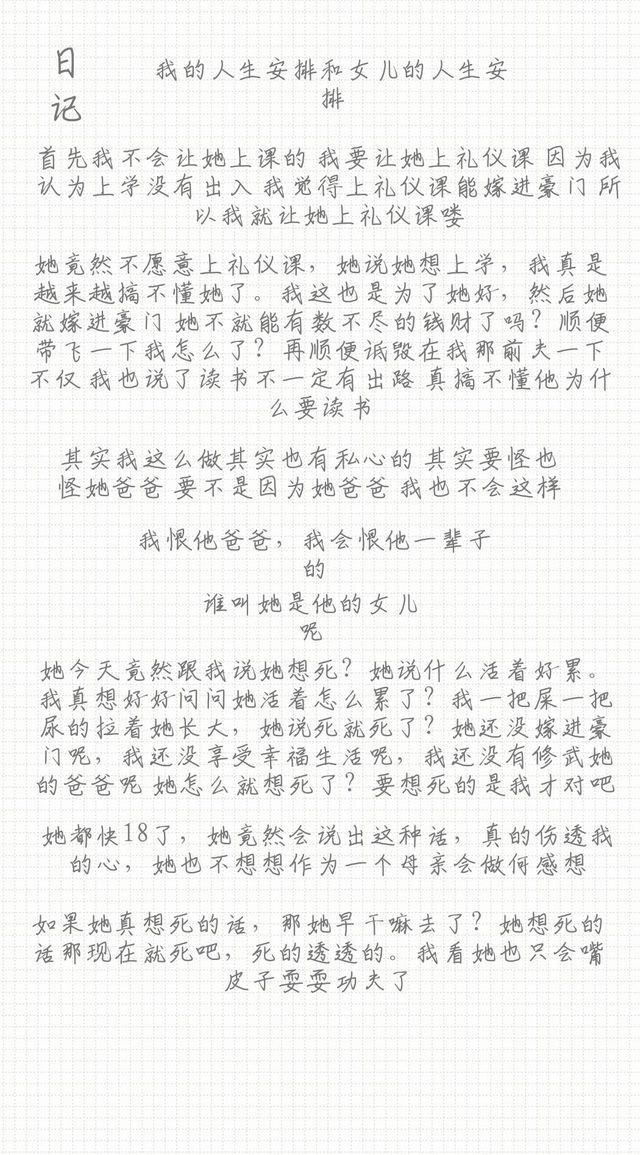 日记
我的人生安排和女儿的人生安
排
首先我不会让她上课的 我要让她上礼仪课 因为我
认为上学没有出入 我觉得上礼仪课能嫁进豪门 所
以我就让她上礼仪课喽
她竟然不愿意上礼仪课，她说她想上学，我真是
越来越搞不懂她了。我这也是为了她好，然后她
就嫁进豪门 她不就能有数不尽的钱财了吗？顺便
带飞一下我怎么了？再顺便诋毁在我那前夫一下
不仅 我也说了读书不一定有出路 真搞不懂他为什
么要读书
其实我这么做其实也有私心的 其实要怪也
怪她爸爸 要不是因为她爸爸 我也不会这样
我恨他爸爸，我会恨他一辈子
的
谁叫她是他的女儿
呢
她今天竟然跟我说她想死？她说什么活着好累。
我真想好好问问她活着怎么累了？我一把屎一把
尿的拉着她长大，她说死就死了？她还没嫁进豪
门呢，我还没享受幸福生活呢，我还没有修武她
的爸爸呢 她怎么就想死了？要想死的是我才对吧
她都快18了，她竟然会说出这种话，真的伤透我
的心，她也不想想作为一个母亲会做何感想
如果她真想死的话，那她早干嘛去了？她想死的
话那现在就死吧，死的透透的。我看她也只会嘴
皮子耍耍功夫了